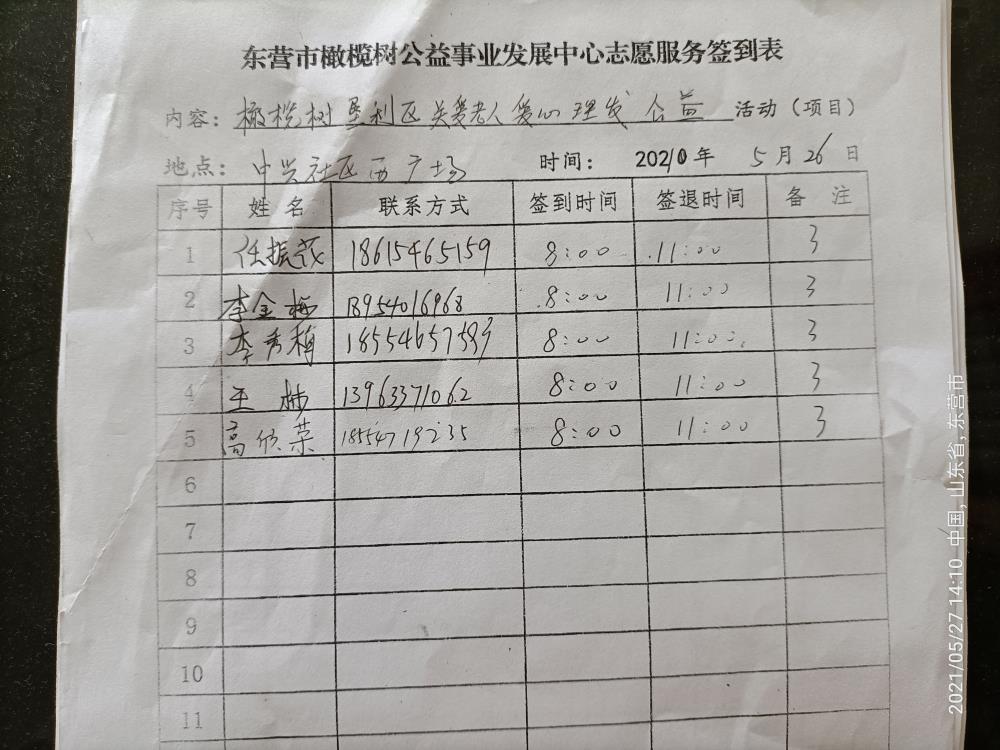 东营市橄榄树公益事业发展中心志愿服务签到表
内容：橄榄树垦利区关爱老人爱心理发公益活动（项目）
地点：中兴社区西广场 时间：2021年 5月26日
序号 姓名 联系方式 签到时间 签退时间 备注
1 任振茂 18615465159 8:00 11:00 3
2 李金梅 13954016968 8:00 11:00 3
3 李秀梅 8:00 11:00 3
4 王 13963371062 8:00 11:00 3
5 高欣荣 18554719235 8:00 11:00 3
6
7
8
9
10
11
2021/05/27 14:10 中国, 山东省, 东营市